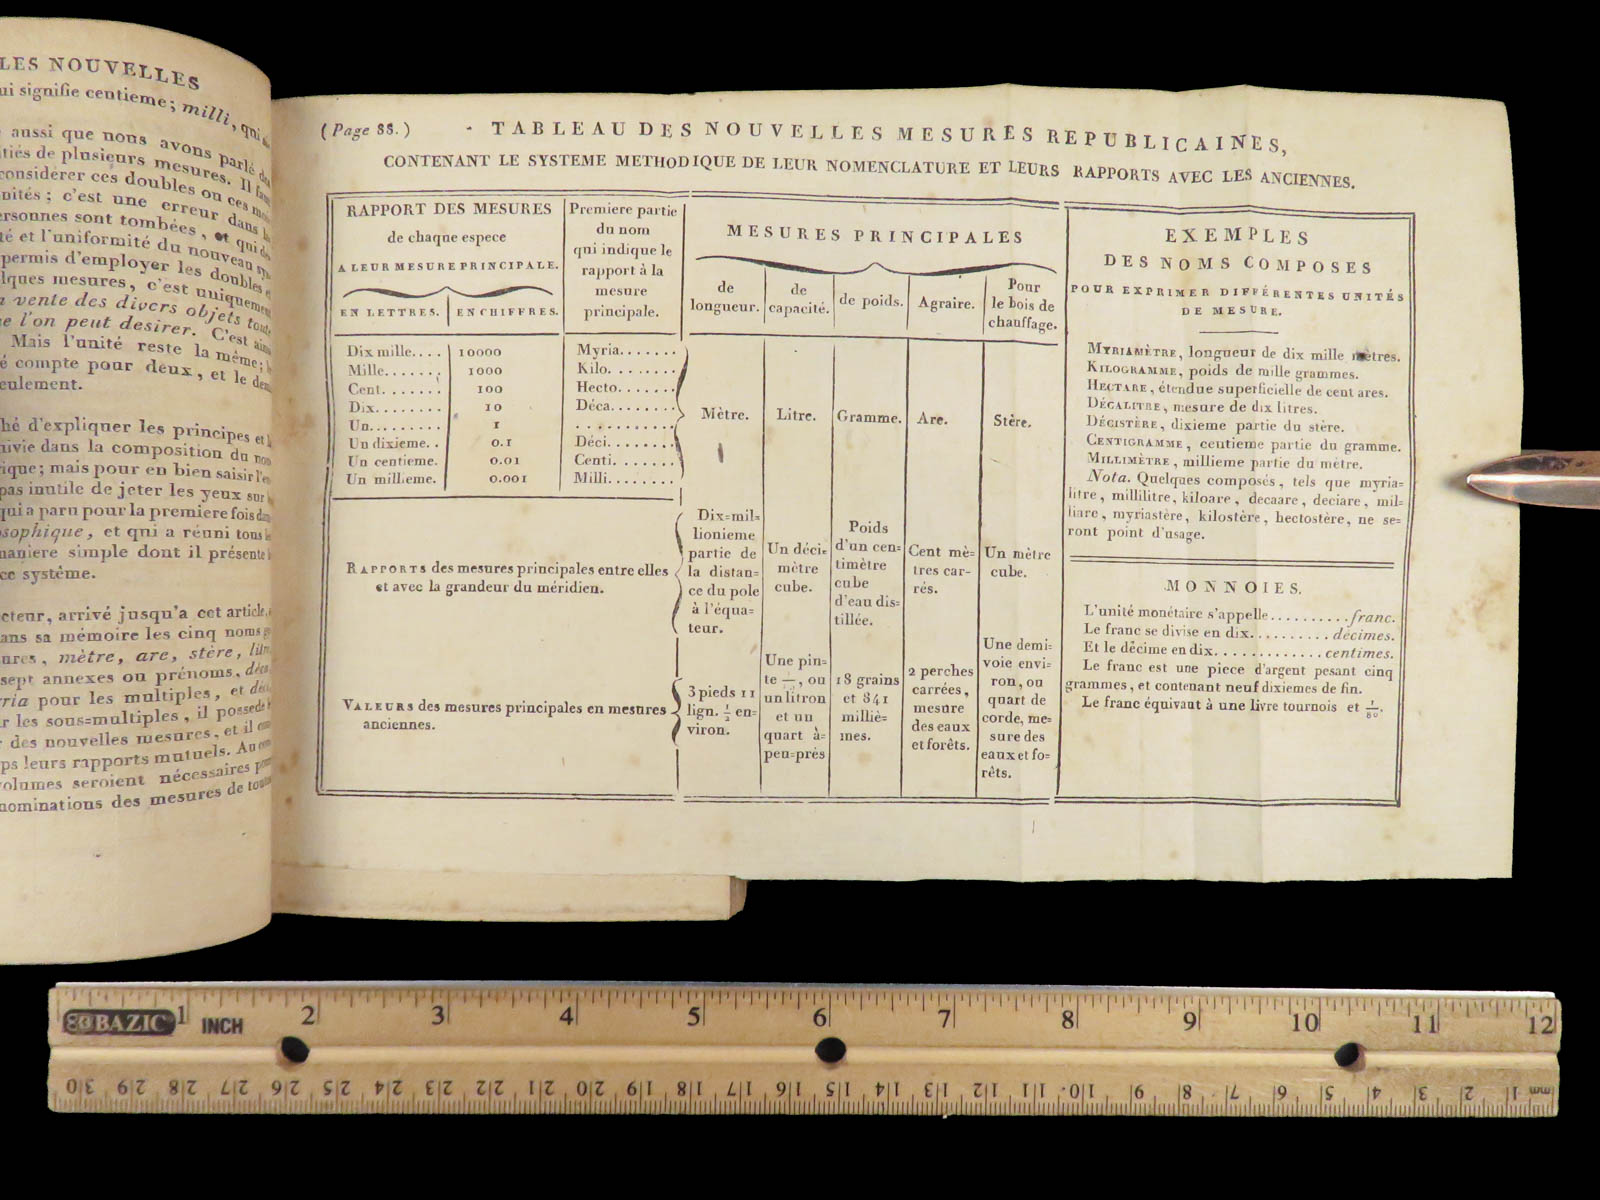 LES NOUVELLES
signifie centieme; milli, qui
aussi que nous avons parlé
de plusieurs mesures. Il
considérer ces doubles ou ces
c'est une erreur dans
sont tombées, et qui
et l'uniformité du nouveau
permis d'employer les doubles
mesures, c'est uniquement
vente des divers objets
l'on peut desirer. C'est
Mais l'unité reste la même;
compte pour deux, et le
d'expliquer les principes et
dans la composition du
mais pour en bien saisir
pas inutile de jeter les yeux sur
qui a paru pour la premiere fois
et qui a réuni tous
maniere simple dont il présente
ce systême.
arrivé jusqu'a cet article,
sa mémoire les cinq noms
mètre, are, stère,
sept annexes ou prénoms,
pour les multiples, et
les sous=multiples, il possede
des nouvelles mesures, et il
leurs rapports mutuels.
seroient nécessaires
des mesures de
(Page 88.)
TABLEAU DES NOUVELLES MESURES REPUBLICAINES,
CONTENANT LE SYSTEME METHODIQUE DE LEUR NOMENCLATURE ET LEURS RAPPORTS AVEC LES ANCIENNES.
RAPPORT DES MESURES
de chaque espece
A LEUR MESURE PRINCIPALE.
EN LETTRES. EN CHIFFRES.
Premiere partie
du nom
qui indique le
rapport à la
mesure
principale.
MESURES PRINCIPALES
de
longueur.
de
capacité.
de poids.
Agraire.
Pour
le bois de
chauffage.
Dix mille.... 10000 Myria.......
Mille....... 1000 Kilo........
Cent....... 100 Hecto.......
Dix........ 10 Déca........
Un......... 1 ...........
Un dixieme.. 0.1 Déci........
Un centieme. 0.01 Centi.......
Un millieme. 0.001 Milli........
Mètre. Litre. Gramme. Are. Stère.
RAPPORTS des mesures principales entre elles
et avec la grandeur du méridien.
Dix=mil=
lionieme
partie de
la distan=
ce du pole
à l'équa=
teur.
Un déci=
mètre
cube.
Poids
d'un cen=
timètre
cube
d'eau dis=
tillée.
Cent mè=
tres car=
rés.
Un mètre
cube.
VALEURS des mesures principales en mesures
anciennes.
3 pieds 11
lign. 1/2 en=
viron.
Une pin=
te, ou
un litron
et un
quart à=
peu=près
18 grains
et 841
milliè=
mes.
2 perches
carrées,
mesure
des eaux
et forêts.
Une demi=
voie envi=
ron, ou
quart de
corde, me=
sure des
eaux et fo=
rêts.
EXEMPLES
DES NOMS COMPOSES
POUR EXPRIMER DIFFÉRENTES UNITÉS
DE MESURE.
MYRIAMÈTRE, longueur de dix mille mètres.
KILOGRAMME, poids de mille grammes.
HECTARE, étendue superficielle de cent ares.
DÉCALITRE, mesure de dix litres.
DÉCISTÈRE, dixieme partie du stère.
CENTIGRAMME, centieme partie du gramme.
MILLIMÈTRE, millieme partie du mètre.
Nota. Quelques composés, tels que myria=
litre, millilitre, kiloare, decaare, deciare, mil=
liare, myriastère, kilostère, hectostère, ne se=
ront point d'usage.
MONNOIES.
L'unité monétaire s'appelle..........franc.
Le franc se divise en dix..........décimes.
Et le décime en dix.............centimes.
Le franc est une piece d'argent pesant cinq
grammes, et contenant neuf dixiemes de fin.
Le franc équivaut à une livre tournois et 1/80.
BAZIC 1 INCH 2 3 4 5 6 7 8 9 10 11 12
30 29 28 27 26 25 24 23 22 21 20 19 18 17 16 15 14 13 12 11 10 9 8 7 6 5 4 3 2 1 mm